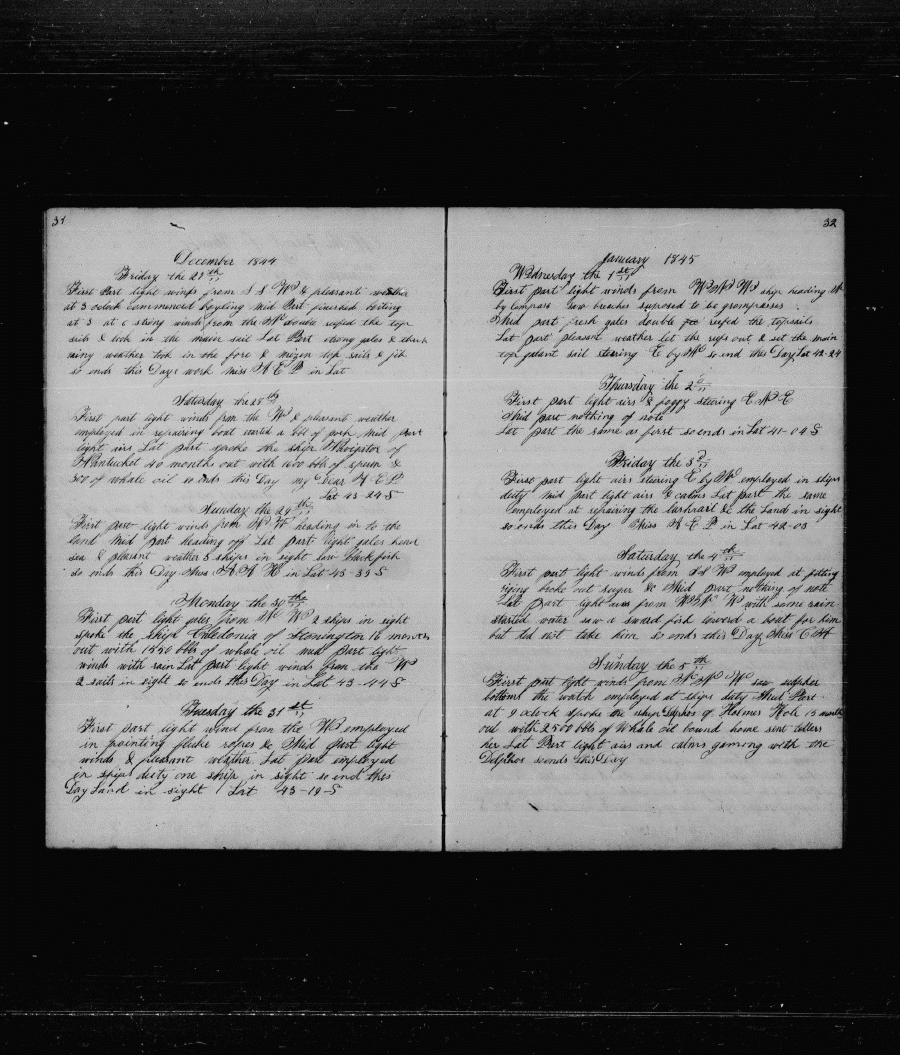 31
December 1844
Friday the 27th
First Part light winds from S S W & pleasant weather
at 3 oclock commenced boyling Mid Part finished
at 3 at 6 strong winds from the W double refed the top
sails & took in the main sail Lat Part strong gales &
rainy weather took in the fore & mizen top sails & jib
so ends this Days work miss H E P in Lat
Saturday the 28th
First part light winds from the W & pleasant weather
employed in repairing boat started a bbl of pork Mid part
light airs Lat part spoke the ship of
Nantucket 40 months out with 1600 bbls of sperm &
300 of whale oil so ends this Day my Dear H E P
Lat 43-24 S
Sunday the 29th
First part light winds from heading in to the
land Mid part heading off Lat part light gales
sea & pleasant weather 3 ships in sight saw blackfish
so ends this Day Miss in Lat 43-39 S
Monday the 30th
First part light gales from W 2 ships in sight
spoke the ship Caledonia of Stonington 16 months
out with 1550 bbls of whale oil mid part light
winds with rain Lat part light winds from the W
2 sails in sight so ends this Day in Lat 43-44 S
Tuesday the 31st
First part light wind from the employed
in pointing fluke ropes &c Mid part light
winds & pleasant weather Lat part employed
in ships duty one ship in sight so ends this
Day Land in sight Lat 43-19-S
32
January 1845
Wednesday the 1st
First part light winds from ship heading
by compass saw breaches suposed to be grompusses
Mid part fresh gales double refed the topsails
Lat part pleasant weather let the refs out & set the main
top galant sail stearing E by so ends this Day Lat 42-24
Thursday the 2d
First part light airs & foggy stering E N E
Mid part nothing of note
Lat part the same as first so ends in Lat 41-04 S
Friday the 3d
First part light airs stering E by employed in ships
duty mid part light airs & calms Lat part the same
employed at repairing the larboard & the Land in sight
so ends this Day Miss H E P in Lat 42-03
Saturday the 4th
First part light winds from employed at fitting
riging broke out sugar &c Mid part nothing of note
Lat part light airs from W with some rain
started water saw a sword fish lowerd a boat for him
but did not take him so ends this Day Miss
Sunday the 5th
First part light winds from saw sulpher
bottoms the watch employed at ships duty Mid Part
at 9 oclock spoke ship Delphos of Holmes Hole 15 month
out with 2500 bbls of Whale oil bound home sent letters
her Lat Part light airs and calms gaming with the
Delphos so ends this Day